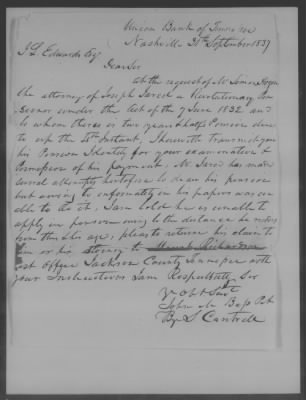 Union Bank of Tennessee
Nashville 20th September 1837
J L Edwards Esq
Dear Sir
at the request of Mr Simon
the attorney of Joseph Jared a Revolutionary Pen
sioner under the Act of the 7 June 1832 and
to whom there is two years & half Pension due
to up the 4th Instant, I herewith Transmit you
his Pension Identity for your examination &
of his payment. Mr Jared has made
several attempts heretofore to draw his pension
but owing to informality in his papers was un
able to do it. I am told he is unable to
apply in person owing to the distance he resides
from this & his age. please to return his claim to
him or his attorney to
post office Jackson County Tennessee with
your Instructions. I am Respectfully Sir
Yr Obt Servt
John M Bass Pst
By L Cantrell